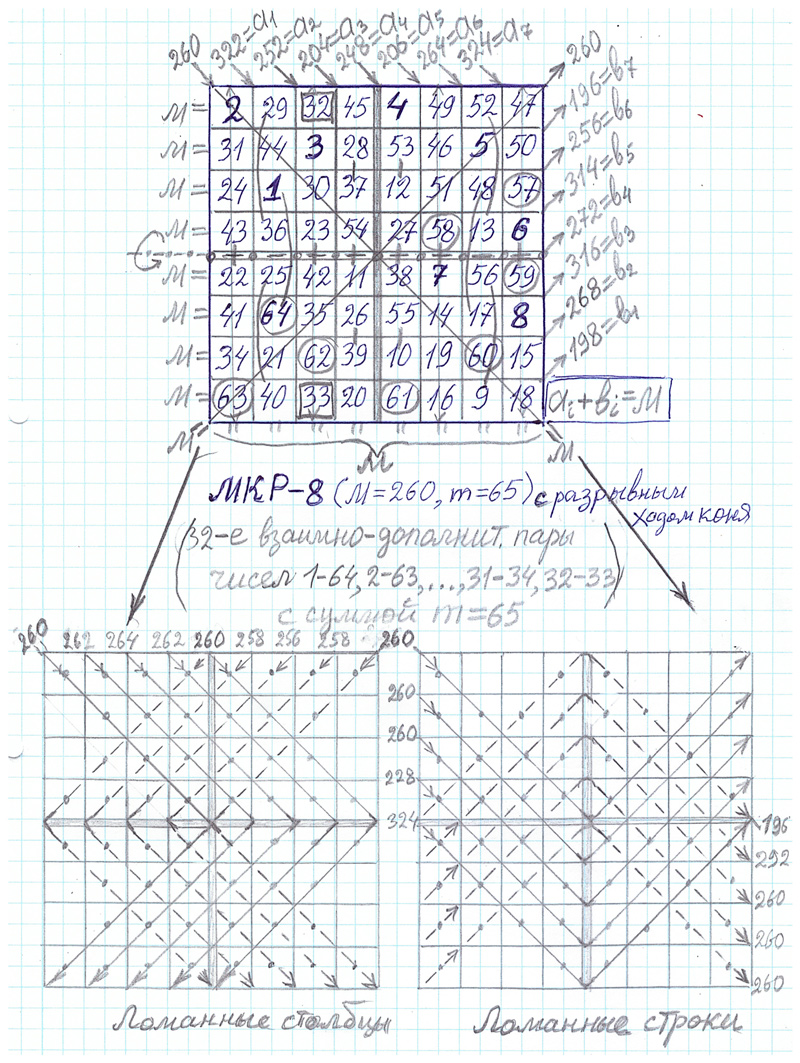 260 322=a1 252=a2 204=a3 248=a4 206=a5 264=a6 324=a7 260
M= 2 29 32 45 4 49 52 47 196=b7
M= 31 44 3 28 53 46 5 50 256=b6
M= 24 1 30 37 12 51 48 57 314=b5
M= 43 36 23 54 27 58 13 6 272=b4
M= 22 25 42 11 38 7 56 59 316=b3
M= 41 64 35 26 55 14 17 8 268=b2
M= 34 21 62 39 10 19 60 15 198=b1
M= 63 40 33 20 61 16 9 18 ai+bi=M
M M M
МКР-8 (M=260, m=65) с разрывным
ходом коня
(32-е взаимно-дополнит. пары
чисел 1-64, 2-63, ..., 31-34, 32-33)
с суммой m=65
260 262 264 262 260 258 256 258 260
260
260
228
324 196
292
260
260
260
Ломанные столбцы Ломанные строки